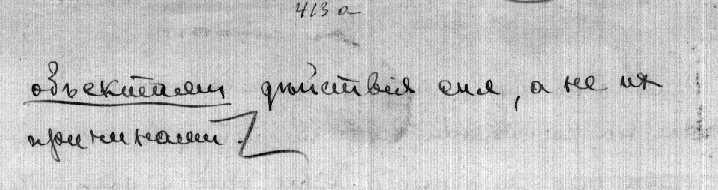 413 а
объектами дѣйствія сил, а не их
причинами.